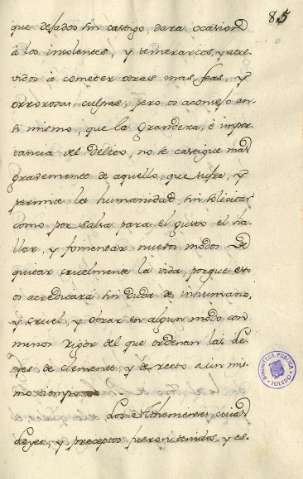 85
que dejados sin castigo, dara ocasion
à los insolentes, y temerarios, y atre
vidos à cometer otras mas feas, y
orrorosas culpas, pero os aconsejo an
ti mismo, que la Grandeza, è impor
tancia del delito, no se castigue mas
gravemente de aquello, que sufre, y
permite la humanidad, sin
como por salsa para el gusto el ha
llar, y fomentar nuevos modos de
quitar cruelmente la vida, porque esto
os acreditarà sin duda de inhumano,
y cruel, y obrar en algun modo con
menor rigor del que ordenan las le
yes de clemente, y de recto a un mis
mo tiempo
Los cuias
Leyes, y preceptos y es
BIBLIOTECA PUBLICA
TOLEDO